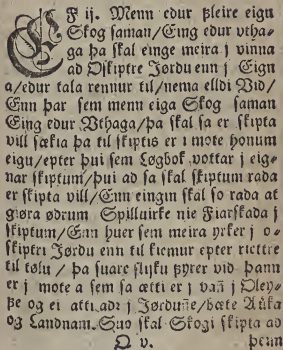 EF ij. Menn edur fleire eign
Skog saman/Eing edur vtha-
ga þa skal einge meira j vinna
ad Oskiptre Jørdu enn j Eign
a/edur tala rennur til/nema elldi Vid/
Enn þar sem menn eiga Skog saman
Eing edur Vthaga/þa skal sa er skipta
vill sækia þa til skiptis er i mote honum
eigu/epter þui sem Løgbok vottar j eig-
nar skiptum/þui ad sa skal skiptum rada
er skipta vill/Enn eingin skal so rada at
giøra ødrum Spilluirke nie Fiarskada j
skiptum/Enn huer sem meira yrker j o-
skiptri Jørdu enn til kiemur epter riettre
til tølu / þa suare slijku fyrer vid þann
er j mote a sem sa ætti er j vañ j Oley-
fe og ei atti adr j Jørduñe/bæte Auka
og Landnam. Suo skal Skogi skipta ad
Q v. þeun